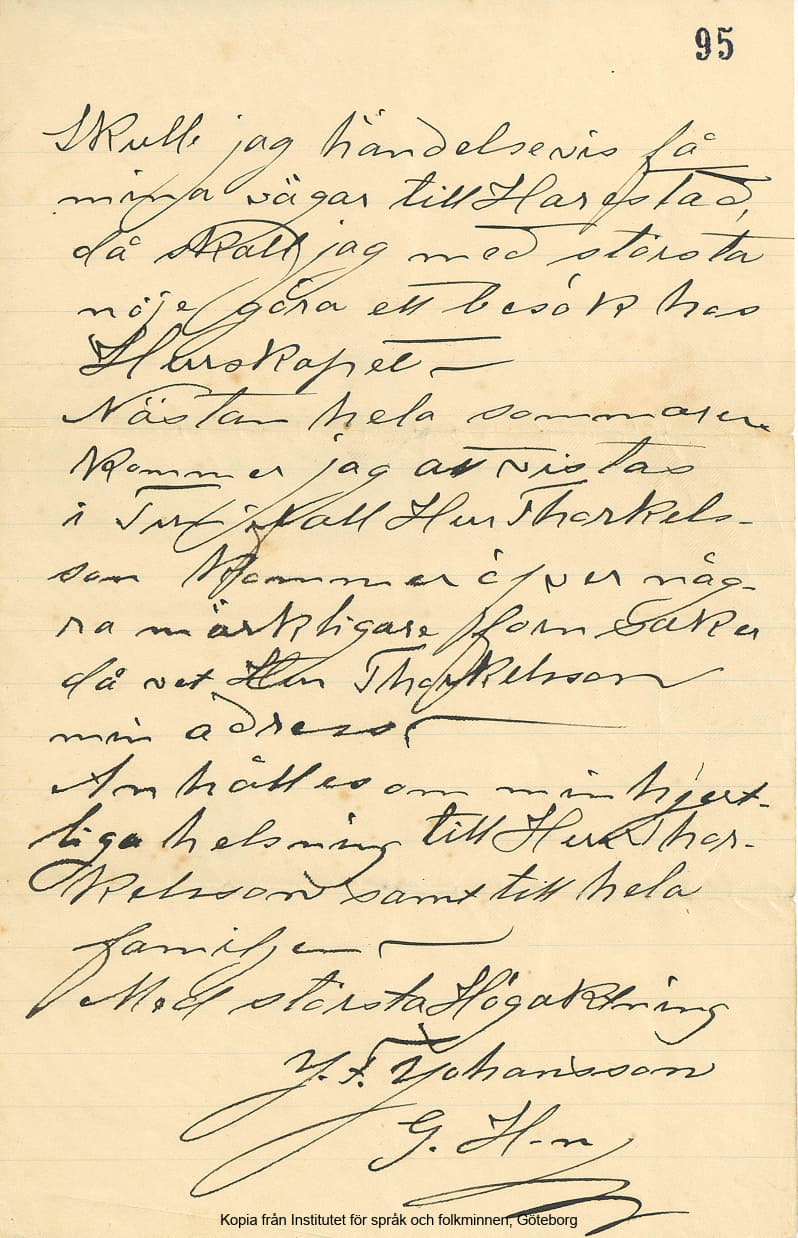 95
Skulle jag händelsevis få
mina vägar till Harestad,
då skall jag med största
nöje göra ett besök hos
Herrskapet –
Nästan hela sommaren
kommer jag att vistas
i skall Herr Thorkels-
son kommer öfver någ-
ra märkligare fornsaker
då vet Herr Thorkelsson
min adress.
Anhålles om min hjert-
liga helsning till Herr Thor-
kelsson samt till hela
familjen –
Med största Högaktning
Y. F. Yohansson
G. H-n
Kopia från Institutet för språk och folkminnen, Göteborg